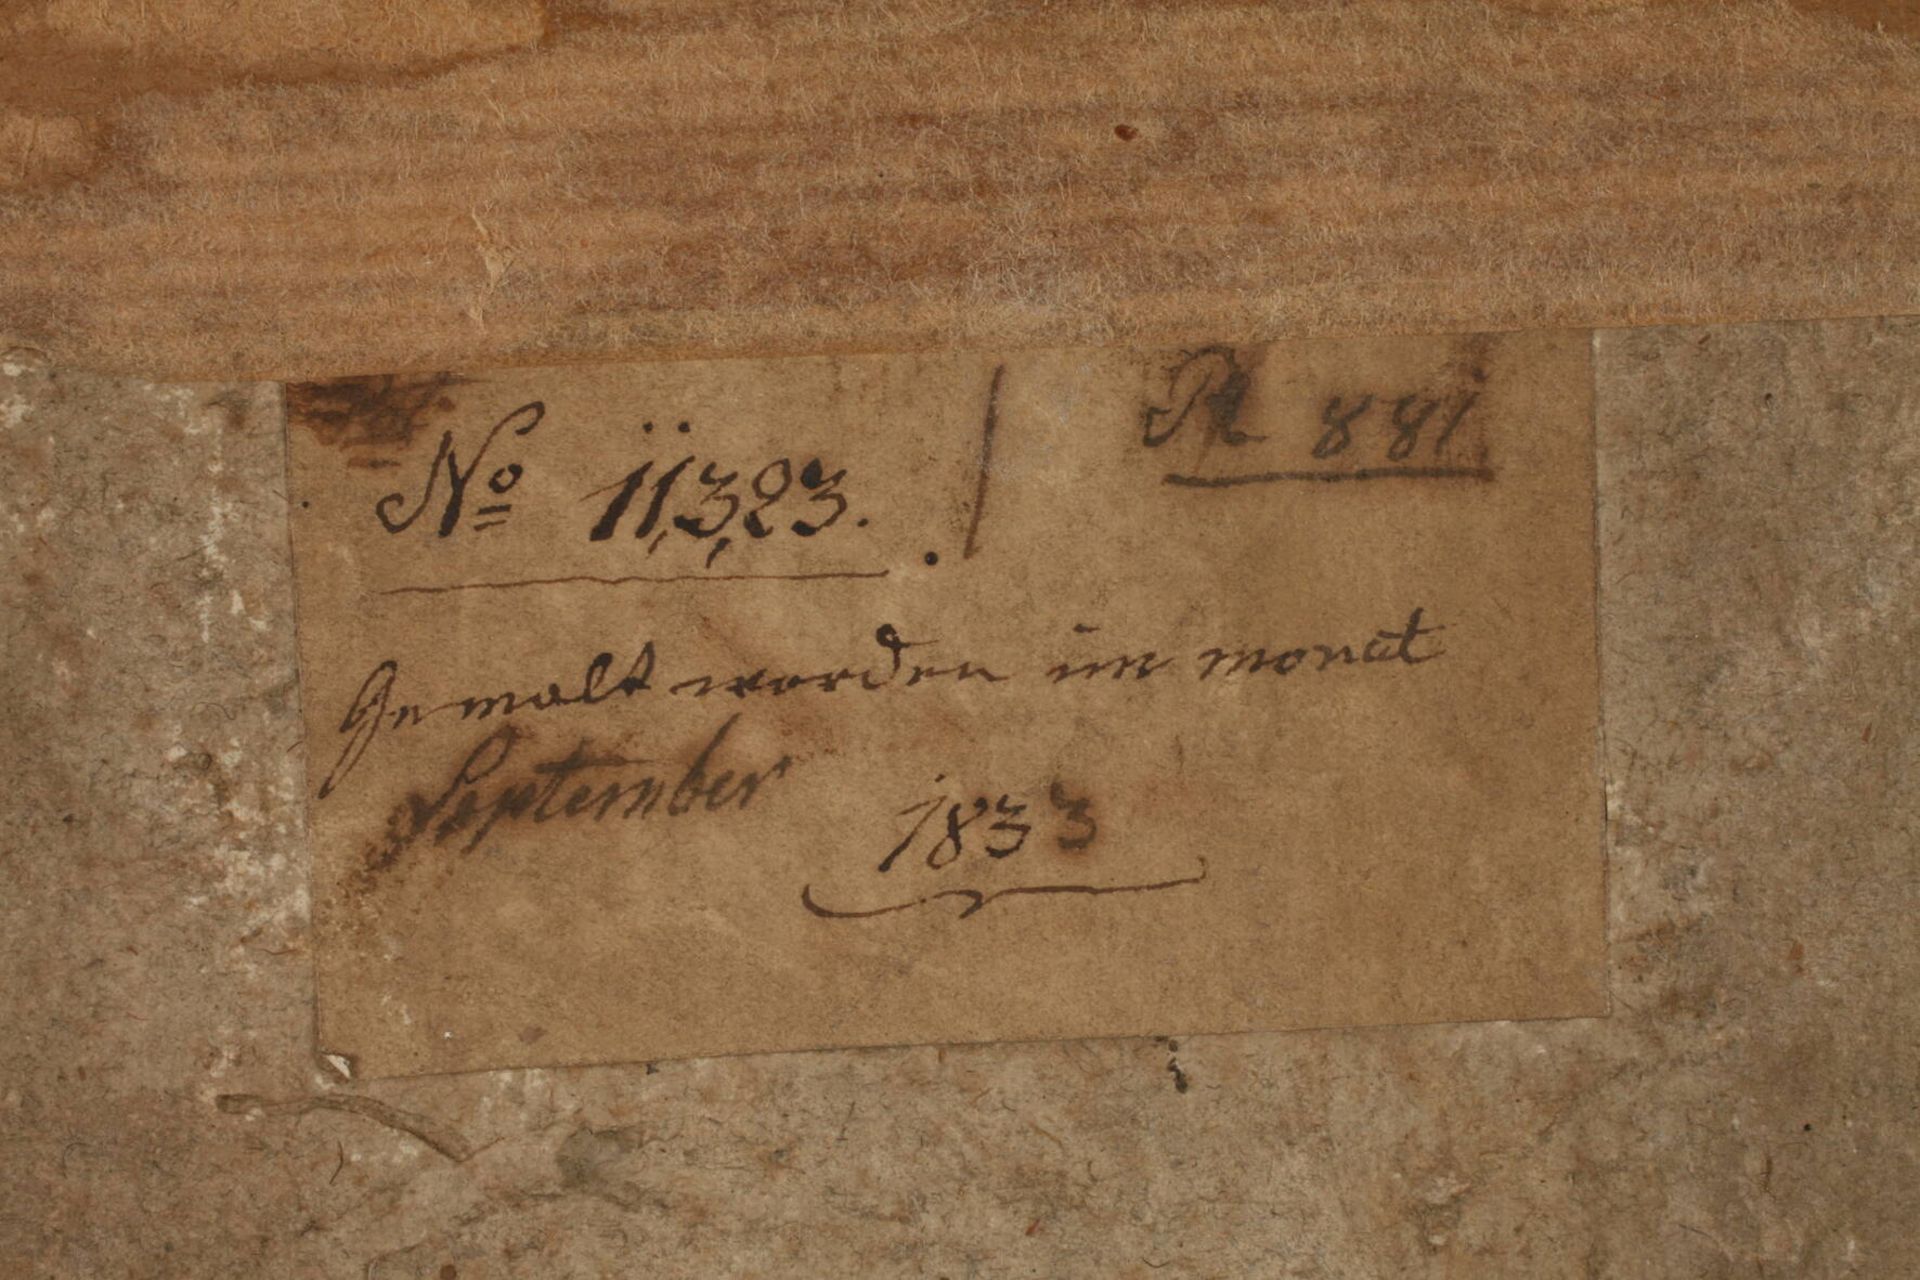 No 11,3,23. / Pl 881
Gemalt worden im monat
September
1833